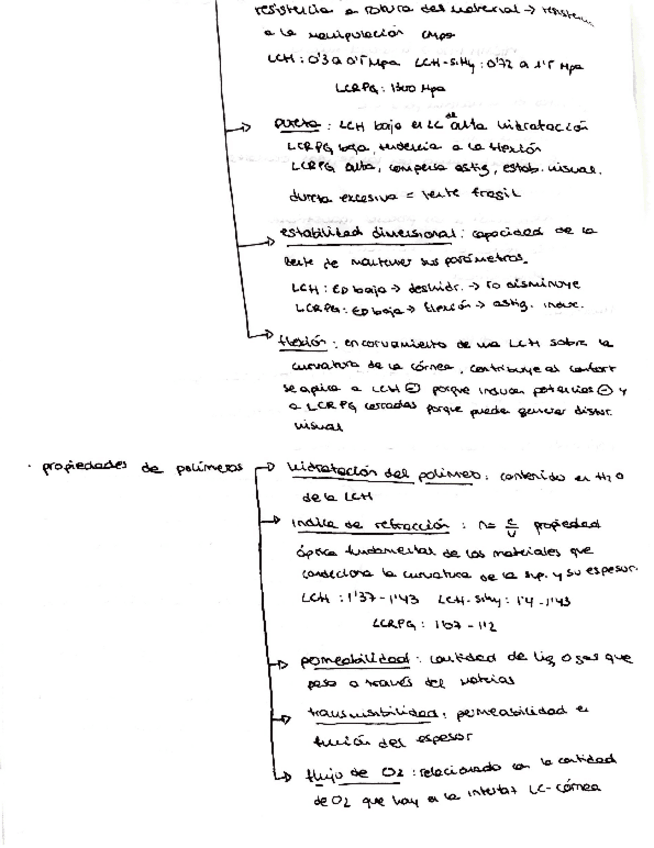 resistencia a rotura del material → resisten
a la manipulación cmps
LCH: 0'3 a 0'5 Mpa LCH-SiHy: 0'72 a 1'5 Mpa
LCRPG: 1300 Mpa
→ dureza: LCH bajo en LC de alta hidratación
LCRPG baja, tendencia a la flexión
LCRPG alta, compensa astig, estab. visual.
dureza excesiva = lente fragil
→ estabilidad dimensional: capacidad de la
lente de mantener sus parámetros.
LCH: ED baja → deshidr. → r0 disminuye
LCRPG: ED baja → flexión → astig. induc.
→ flexión: encorvamiento de una LCH sobre la
curvatura de la córnea, contribuye al confort
se aplica a LCH ⊖ porque inducen potencias ⊖ y
a LCRPG cerradas porque puede generar distor.
visual
· propiedades de polímeros → hidratación del polímero: contenido en H2O
de la LCH
→ indice de refracción: n = c/v propiedad
óptica fundamental de los materiales que
condiciona la curvatura de la sup. y su espesor.
LCH: 1'37-1'43 LCH-SiHy: 1'4-1'43
LCRPG:
→ permeabilidad: cantidad de liq o gas que
pasa a través del material
→ transmisibilidad: permeabilidad en
función del espesor
→ flujo de O2: relacionado con la cantidad
de O2 que hay en la interfaz LC-córnea